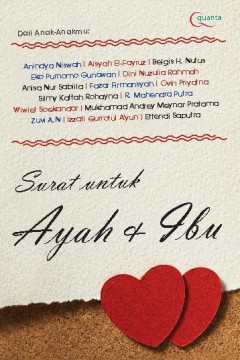 quanta
Dari Anak-Anakmu:
Anindya Niswah | Aisyah El-Fayruz | Beigis H. Nufus
Eko Purnomo Gunawan | Dini Nuzulia Rahmah
Anisa Nur Sabilla | Fajar Firmansyah | Ovin Priyatna
Silmy Kaffah Rohayna | R. Mahendra Putra
Wiwiet Soekandar | Mukhamad Andrey Meynar Pratama
Zuvi A.N | Izzati Qurrotul Ayun | Effendi Saputra
Surat untuk
Ayah & Ibu